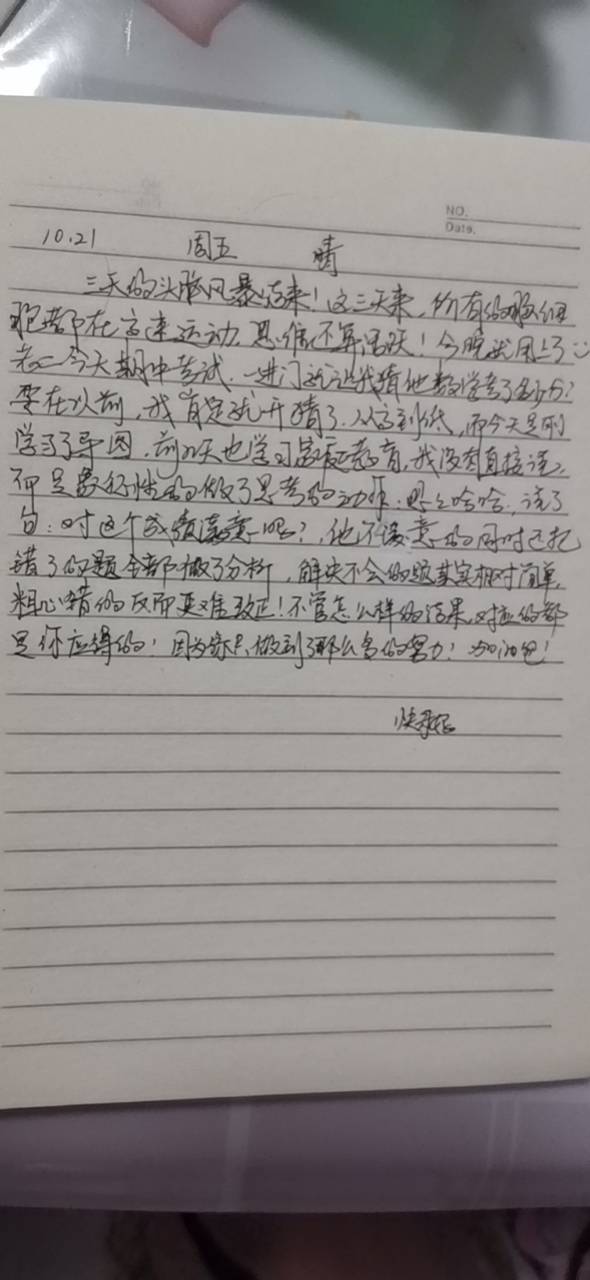 NO.
Date.
10.21 周五 晴
三天的头脑风暴结束！这三天来，所有的脑细
胞都在高速运动，思维不算活跃！今晚就用上了
老二今天期中考试，一进门就让我猜他数学考了多少分？
要在以前，我肯定就开猜了，从高到低，而今天是刚
学习了导图，前几天也学习教育，我没有直接说，
而是的做了思考的动作：哈哈，说了
句：对这个成绩满意吗？，他不满意的同时还把
错了的题全部做了分析，解决不会的题其实相对简单，
粗心错的反而更难改正！不管怎么样的结果，对应的都
是你应得的！因为你只做到了那么多的努力！加油吧！